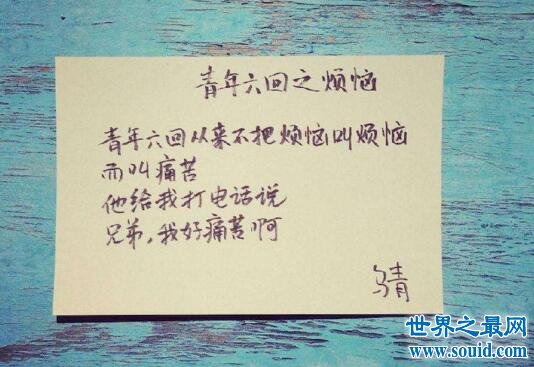 青年六回之烦恼
青年六回从来不把烦恼叫烦恼
而叫痛苦
他给我打电话说
兄弟，我好痛苦啊
乌青
世界之最网
www.souid.com